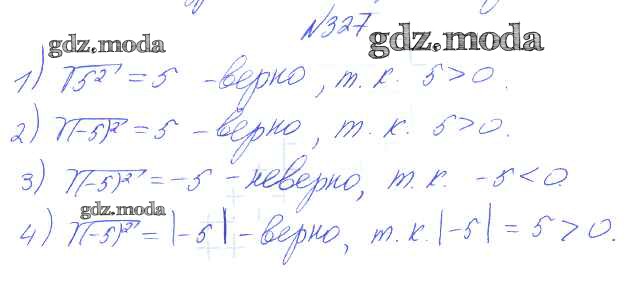 №327
gdz.moda gdz.moda
1) √5² = 5 - верно, т.к. 5>0.
2) √(-5)² = 5 - верно, т.к. 5>0.
3) √(-5)² = -5 - неверно, т.к. -5<0.
gdz.moda
4) √(-5)² = |-5| - верно, т.к. |-5| = 5>0.